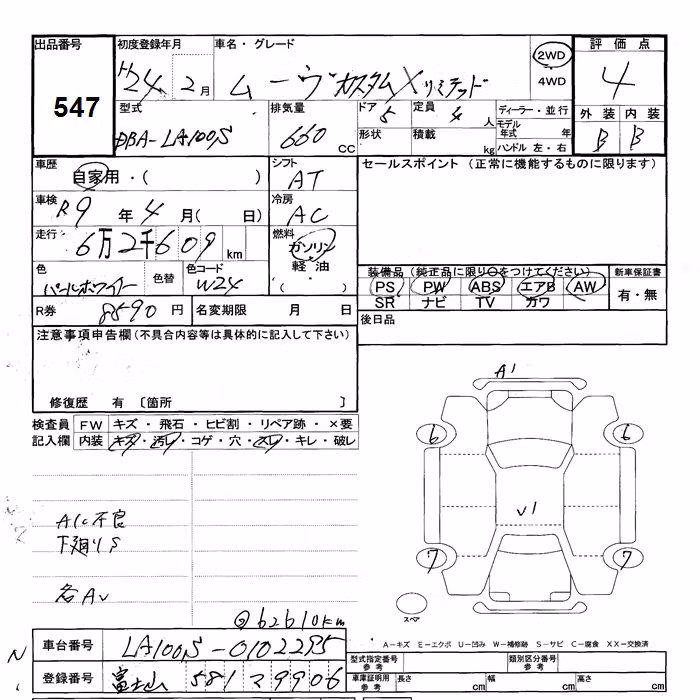 出品番号 初度登録年月 車名・グレード 評価点
547 H24年2月 ムーヴカスタムX リミテッド 2WD 4WD 4
型式 排気量 ドア 5 定員 4人 ディーラー・並行 外装 内装
DBA-LA100S 660 CC 形状 積載 kg モデル年式 年 ハンドル 左・右 B B
車歴 自家用・( ) シフト AT セールスポイント (正常に機能するものに限ります)
車検 R9年4月( 日) 冷房 AC
走行 6万2千609km 燃料 ガソリン 軽油 ( ・ )
色 パールホワイト 色替 色コード W24 装備品(純正品に限り○をつけてください) 新車保証書
PS PW ABS エアB AW 有・無
SR ナビ TV カワ
R券 8590円 名変期限 月 日 後日品
注意事項申告欄(不具合内容等は具体的に記入して下さい)
修復歴 有 〔箇所 〕
A1
検査員 FW キズ・飛石・ヒビ割・リペア跡・×要
記入欄 内装 キズ・汚レ・コゲ・穴・スレ・キレ・破レ
6 6
V1
A/C不良
下廻りS
7 7
各AV
@62610km
スペア
A−キズ E−エクボ U−凹み W−補修跡 S−サビ C−腐食 XX−交換済
車台番号 LA100S-0102295
型式指定番号 参考 類別区分番号 参考
登録番号 富士山 581 29906
車庫証明用 参考 長さ cm 幅 cm 高さ cm